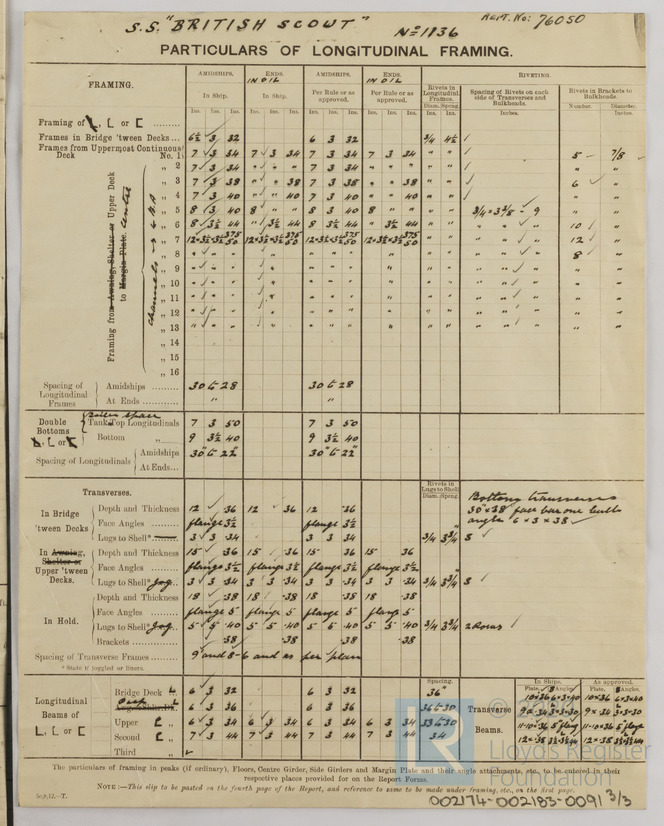 S.S. "BRITISH SCOUT" No 1136 Rept. No: 76050
PARTICULARS OF LONGITUDINAL FRAMING.
FRAMING. AMIDSHIPS. ENDS. AMIDSHIPS. ENDS. RIVETING.
IN OIL IN OIL
In Ship. In Ship. Per Rule or as approved. Per Rule or as approved. Rivets in Longitudinal Frames. Spacing of Rivets on each side of Transverses and Bulkheads. Rivets in Brackets to Bulkheads.
Ins. Ins. Ins. Ins. Ins. Ins. Ins. Ins. Ins. Ins. Ins. Ins. Diam. Speng. Inches. Number. Diameter. Inches.
Framing of L, L or [
Frames in Bridge 'tween Decks... 6½ 3 32 6 3 32 3/4 4½
Frames from Uppermost Continuous Deck No. 1 7 3 34 7 3 34 7 3 34 7 3 34 " " 5 7/8
" 2 7 3 34 " " " 7 3 34 " " " " " " "
" 3 7 3 38 " " 38 7 3 38 " " 38 " " 6 "
" 4 7 3 40 " " 40 7 3 40 " " 40 " " " "
" 5 8 3 40 8 " " 8 3 40 8 " " " " 3/4 × 3 3/8 - 9 " "
" 6 8 3½ 44 " 3½ 44 8 3½ 44 " 3½ 44 " " " " " 10 "
" 7 12×3½×3½ 375/50 12×3½×3½ 375/50 12×3½×3½ 375/50 12×3½×3½ 375/50 " " " " " 12 "
" 8 " " " " " " " " " " 8 "
" 9 " " " " " " " " "
" 10 " " " " " " " " "
" 11 " " " " " " " " "
" 12 " " " " " " " " "
" 13 " " " " " " " " "
" 14
" 15
" 16
Framing from Awning, Shelter or Upper Deck
to Margin Plate. Centre
Spacing of Longitudinal Frames
Amidships 30 to 28 30 to 28
At Ends " "
Double Bottoms L, [ or [
Boiler space
Tank Top Longitudinals 7 3 50 7 3 50
Bottom " 9 3½ 40 9 3½ 40
Spacing of Longitudinals Amidships 30" to 22" 30" to 22"
At Ends...
Transverses. Rivets in Lugs to Shell Diam. Speng.
Bottom transverses
30 × 38 face bar one bulb
angle 6 × 3 × 38
In Bridge 'tween Decks
Depth and Thickness 12 36 12 36 12 36
Face Angles flange 3½ flange 3½
Lugs to Shell* 3 3 34 3 3 34 3/4 3¾ 8
In Awning, Shelter or Upper 'tween Decks.
Depth and Thickness 15 36 15 36 15 36 15 36
Face Angles flange 3½ flange 3½ flange 3½ flange 3½
Lugs to Shell* Jog. 3 3 34 3 3 34 3 3 34 3 3 34 3/4 3¾ 8
In Hold.
Depth and Thickness 18 38 18 38 18 38 18 38
Face Angles flange 5 flange 5 flange 5 flange 5
Lugs to Shell* Jog. 5 5 40 5 5 40 5 5 40 5 5 40 3/4 3¾ 2 Rows
Brackets 38 38 38 38
Spacing of Transverse Frames 9 and 8-6 and as per plan
* State if joggled or liners.
Longitudinal Beams of L, [ or [
Spacing. Transverse Beams. In Ships. As approved.
Plate. Angles. Plate. Angles.
Bridge Deck L. 6 3 32 6 3 32 36" 10×36 6×3×40 10×36 6×3×40
6 3 36 6 3 36 36 to 30
Upper [ " 6 3 34 6 3 34 6 3 34 6 3 34 33 to 30
Second [ " 7 3 44 7 3 44 7 3 44 7 3 44 34
Third "
© Lloyd's Register Foundation
The particulars of framing in peaks (if ordinary), Floors, Centre Girder, Side Girders and Margin Plate and their angle attachments, etc., to be entered in their
respective places provided for on the Report Forms.
NOTE:—This slip to be pasted on the fourth page of the Report, and reference to same to be made under framing, etc., on the first page.
002174-002183-0091 3/3